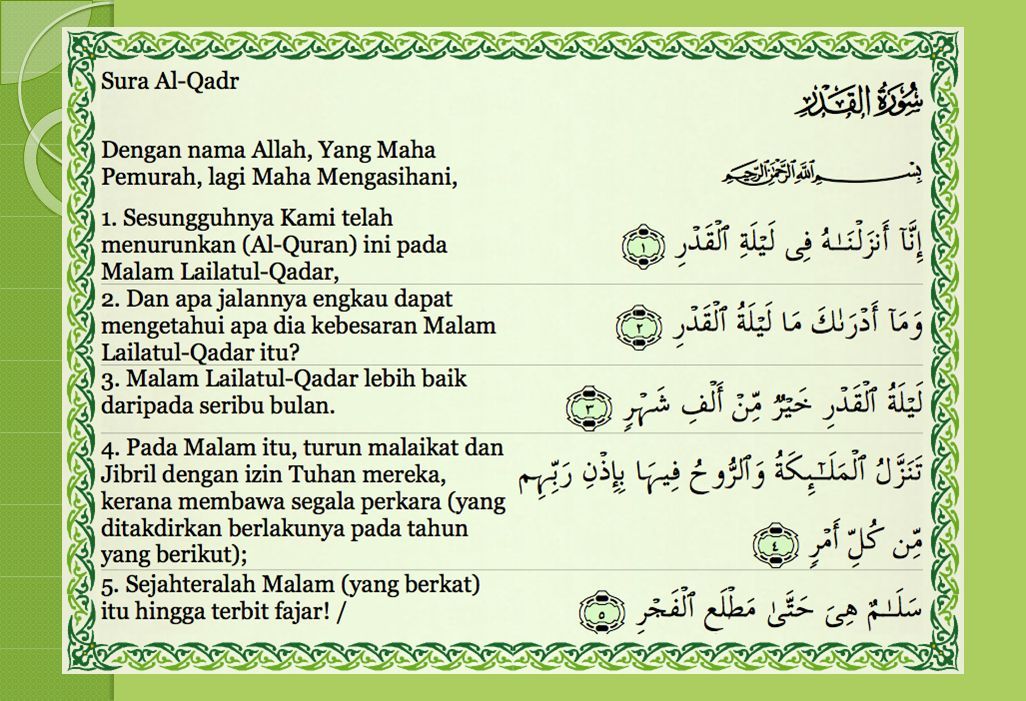 Sura Al-Qadr
سُورَةُ القَدْرِ
Dengan nama Allah, Yang Maha
Pemurah, lagi Maha Mengasihani,
بِسْمِ ٱللَّهِ ٱلرَّحْمَٰنِ ٱلرَّحِيمِ
1. Sesungguhnya Kami telah
menurunkan (Al-Quran) ini pada
Malam Lailatul-Qadar,
إِنَّآ أَنزَلْنَـٰهُ فِى لَيْلَةِ ٱلْقَدْرِ ١
2. Dan apa jalannya engkau dapat
mengetahui apa dia kebesaran Malam
Lailatul-Qadar itu?
وَمَآ أَدْرَىٰكَ مَا لَيْلَةُ ٱلْقَدْرِ ٢
3. Malam Lailatul-Qadar lebih baik
daripada seribu bulan.
لَيْلَةُ ٱلْقَدْرِ خَيْرٌ مِّنْ أَلْفِ شَهْرٍ ٣
4. Pada Malam itu, turun malaikat dan
Jibril dengan izin Tuhan mereka,
kerana membawa segala perkara (yang
ditakdirkan berlakunya pada tahun
yang berikut);
تَنَزَّلُ ٱلْمَلَـٰٓئِكَةُ وَٱلرُّوحُ فِيهَا بِإِذْنِ رَبِّهِم
مِّن كُلِّ أَمْرٍ ٤
5. Sejahteralah Malam (yang berkat)
itu hingga terbit fajar! /
سَلَـٰمٌ هِىَ حَتَّىٰ مَطْلَعِ ٱلْفَجْرِ ٥